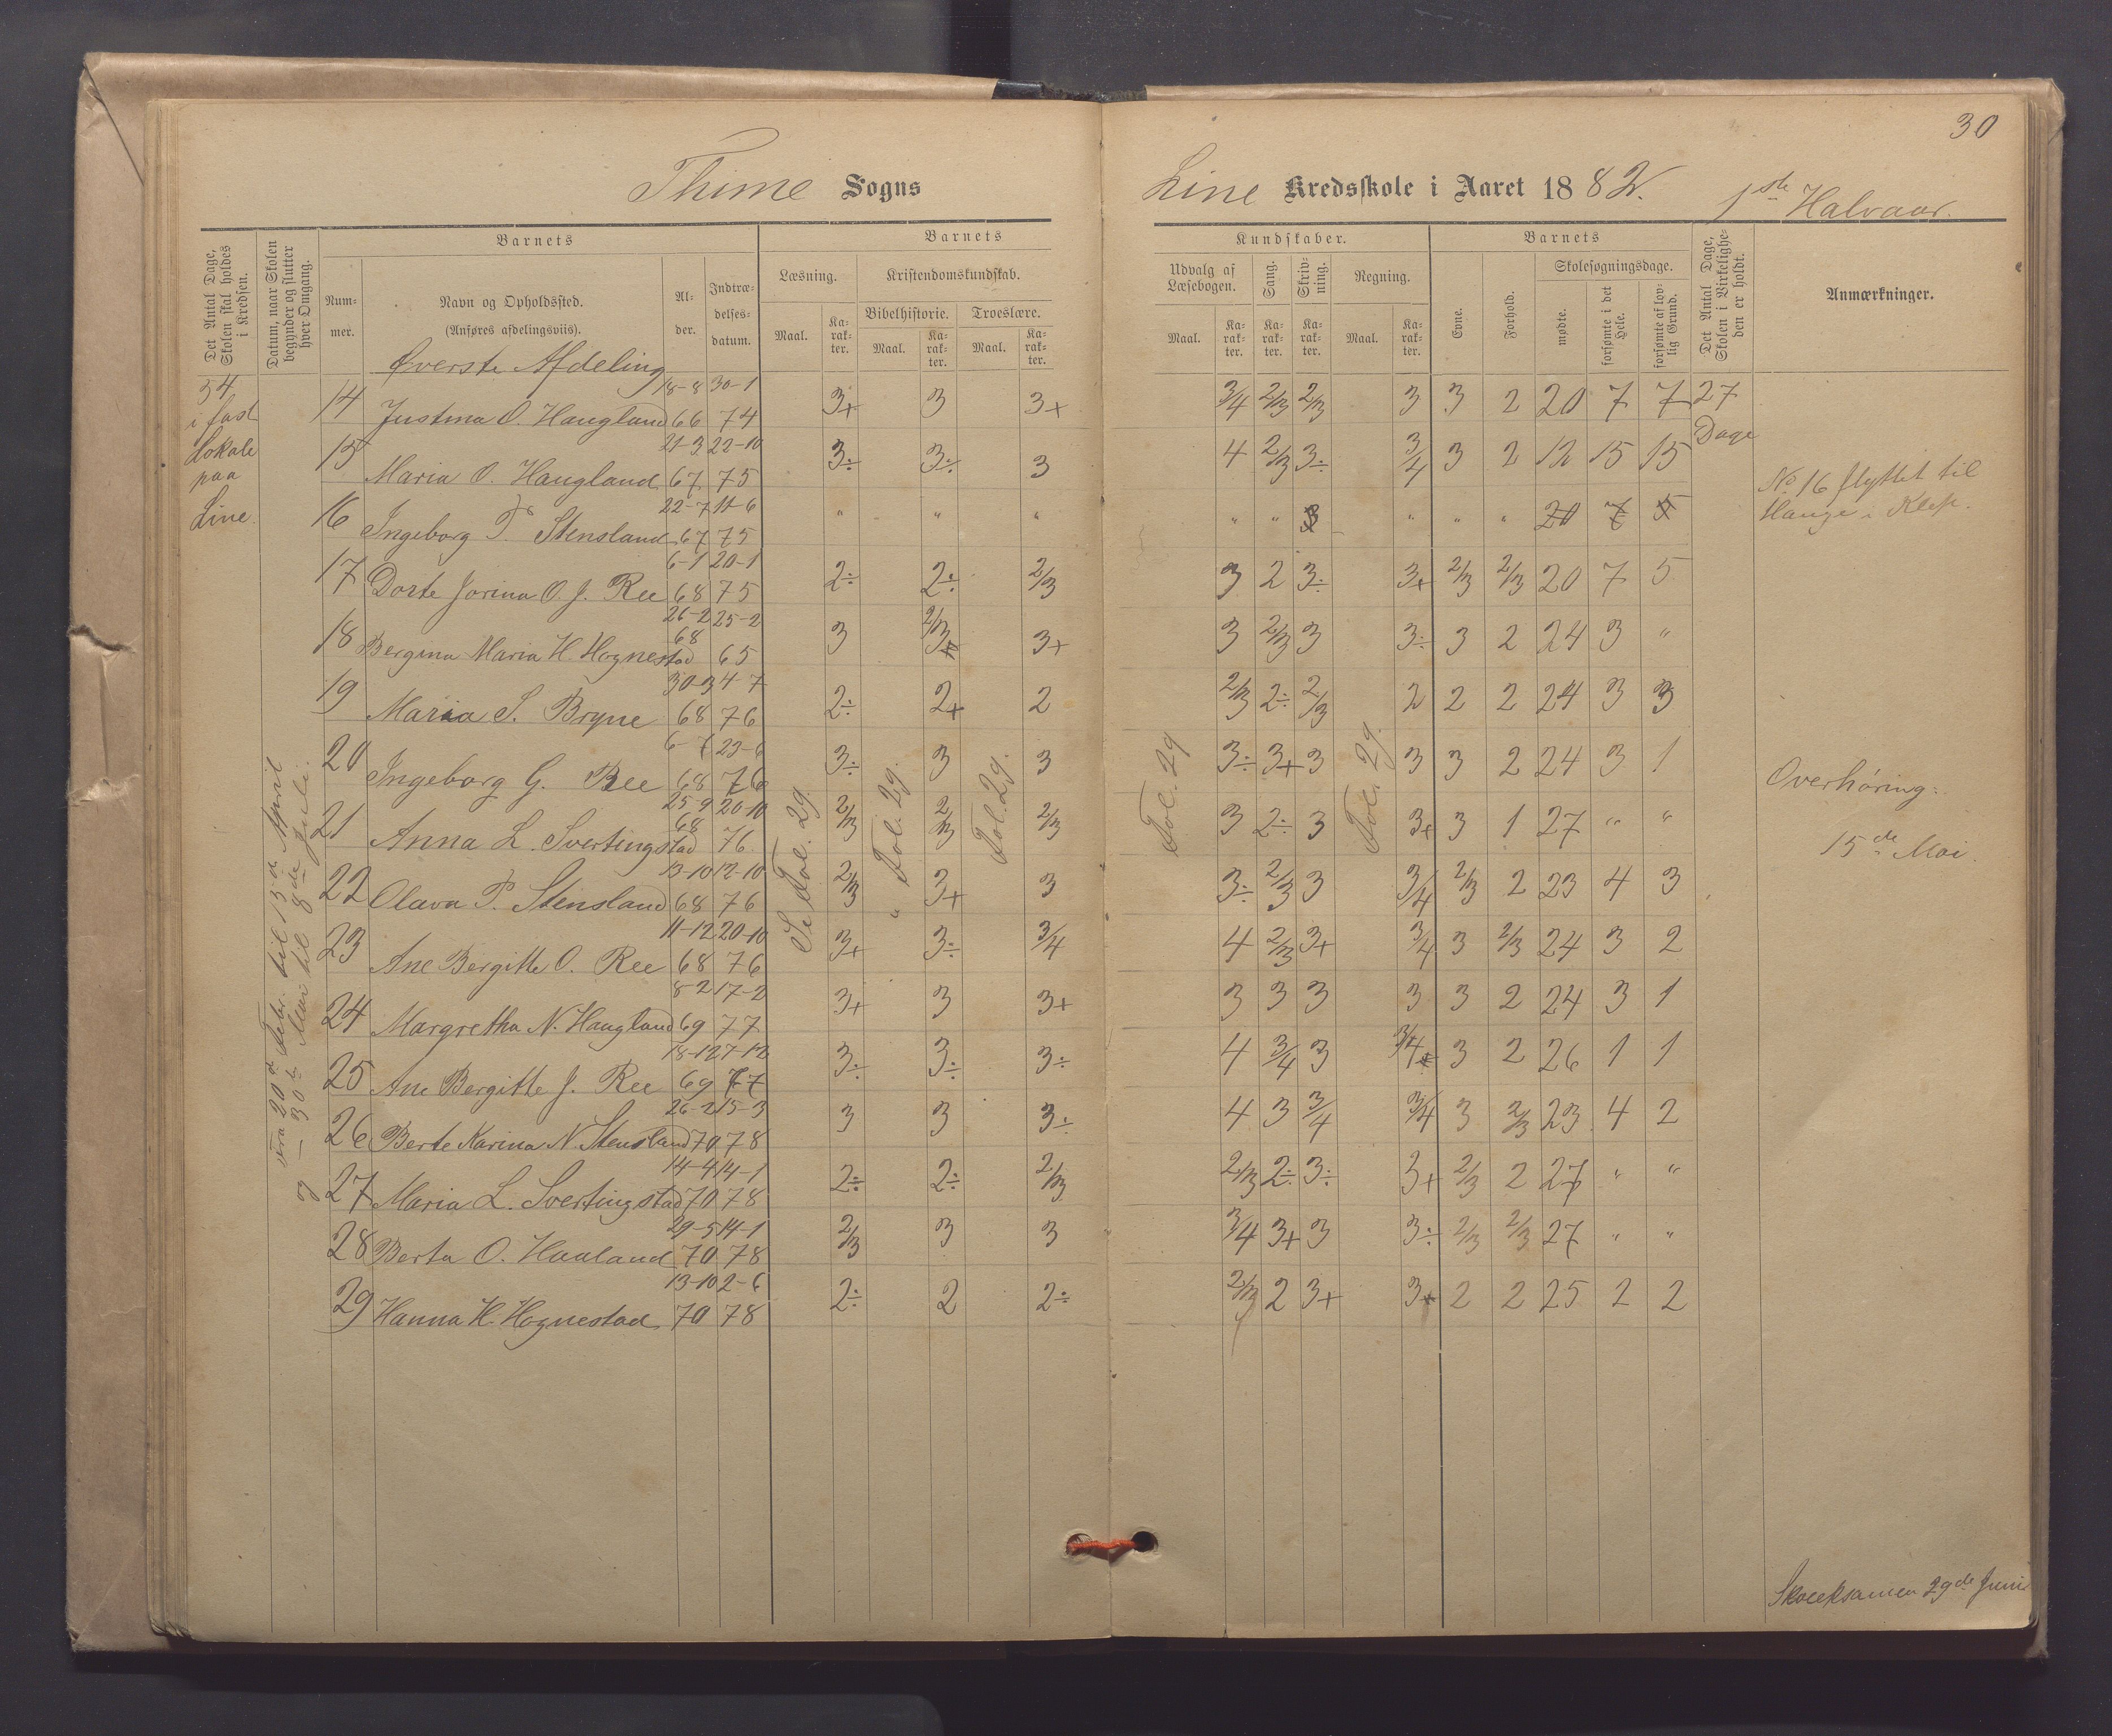 30
Thime Sogns
Line Kredsskole i Aaret 1882. 1ste Halvaar.
Det Antal Dage, Skolen skal holdes i Kredsen.
Datum, naar Skolen begynder og slutter hver Omgang.
Barnets
Nummer.
Navn og Opholdssted.
(Anføres afdelingsviis).
Alder.
Indtrædelsesdatum.
Barnets
Læsning.
Kristendomskundskab.
Bibelhistorie.
Troeslære.
Maal. Karakter. Maal. Karakter. Maal. Karakter.
Kundskaber.
Udvalg af Læsebogen. Sang. Skrivning. Regning.
Maal. Karakter. Karakter. Karakter. Maal. Karakter.
Barnets
Evne. Forhold.
Skolesøgningsdage.
mødte. forsømte i det Hele. forsømte af lovlig Grund.
Det Antal Dage, Skolen i Virkeligheden er holdt.
Anmærkninger.
Øverste Afdeling
34
i fast
Lokale
paa
Line.
Fra 20de Febr. til 13de April
og — 30te Mai til 8de Juli.
14 Justina O. Haugland 18-8 66 30-1 74 3+ 3 3+ 3/4 2/3 2/3 3 3 2 20 7 7 27 Dage
15 Maria O. Haugland 21-3 67 22-10 75 3÷ 3÷ 3 4 2/3 3÷ 3/4 3 2 12 15 15
16 Ingeborg T. Stensland 22-7 67 11-6 75 " " " " " 3 " " " 20 7 5
17 Dorte Jorina O. J. Ree 6-1 68 20-1 75 2÷ 2÷ 2/3 3 2 3÷ 3+ 2/3 2/3 20 7 5
18 Bergina Maria H. Hognestad 26-2 68 25-2 65 3 2/3 3+ 3 2/3 3 3÷ 3 2 24 3 "
19 Maria S. Bryne 30-3 68 4-7 76 2÷ 2+ 2 2/3 2÷ 2/3 2 2 2 24 3 3
20 Ingeborg G. Ree 6-7 68 23-6 76 3÷ 3 3 3÷ 3+ 3 3 3 2 24 3 1
21 Anna L. Svertingstad 25-9 68 20-10 76. 2/3 2/3 2/3 3 2÷ 3 3+ 3 1 27 " "
22 Olava T. Stensland 13-10 68 12-10 76 2/3 3+ 3 3÷ 2/3 3 3/4 2/3 2 23 4 3
23 Ane Bergitte O. Ree 11-12 68 20-10 76 3+ 3÷ 3/4 4 2/3 3+ 3/4 3 2/3 24 3 2
24 Margretha N. Haugland 8-2 69 17-2 77 3+ 3 3+ 3 3 3 3 3 2 24 3 1
25 Ane Bergitte J. Ree 18-12 69 7-12 77 3÷ 3÷ 3÷ 4 3/4 3 3/4 3 2 26 1 1
26 Berte Karina N. Stensland 26-2 70 15-3 78 3 3 3÷ 4 3 3/4 3/4 3 2/3 23 4 2
27 Maria L. Svertingstad 14-4 70 14-1 78 2÷ 2÷ 2/3 2/3 2÷ 3÷ 3+ 2/3 2 27 " "
28 Berta O. Haaland 29-5 70 14-1 78 2/3 3 3 3/4 3+ 3 3÷ 2/3 2/3 27 " "
29 Hanna H. Hognestad 13-10 70 2-6 78 2÷ 2 2÷ 2/3 2 3+ 3+ 2 2 25 2 2
Se Fol. 29.
" Fol. 29.
Fol. 29.
Fol. 29
Fol. 29.
No 16 flyttet til
Hauge i Klep.
Overhøring:
15de Mai.
Skoleksamen 29de Juni